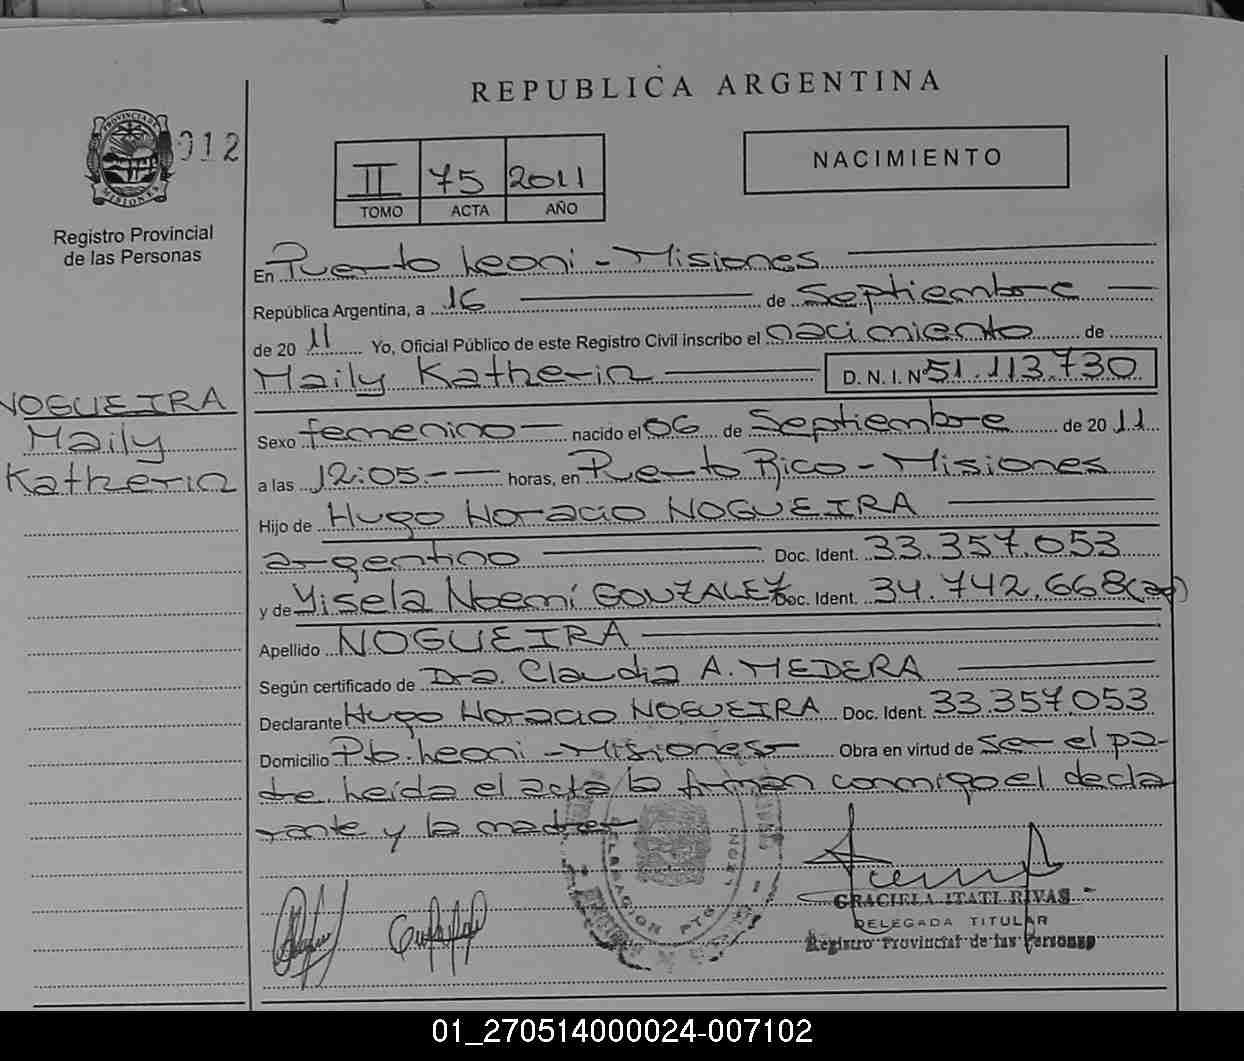 REPUBLICA ARGENTINA
PROVINCIA DE MISIONES
012
Registro Provincial
de las Personas
II 75 2011
TOMO ACTA AÑO
NACIMIENTO
En Puerto Leoni - Misiones
República Argentina, a 16 de Septiembre
de 2011 Yo, Oficial Público de este Registro Civil inscribo el nacimiento de
Maily Katherin D.N.I. Nº 51.113.730
NOGUEIRA
Maily
Katherin
Sexo femenino nacido el 06 de Septiembre de 2011
a las 12:05.- horas, en Puerto Rico - Misiones
Hijo de Hugo Horacio NOGUEIRA
argentino Doc. Ident. 33.357.053
y de Yisela Noemí GONZALEZ Doc. Ident. 34.742.668(ag)
Apellido NOGUEIRA
Según certificado de Dra. Claudia A. MEDERA
Declarante Hugo Horacio NOGUEIRA Doc. Ident. 33.357.053
Domicilio Pto. Leoni - Misiones Obra en virtud de ser el pa-
dre. Leída el acta la firman conmigo el decla
rante y la madre
DELEGACION PTO LEONI
GRACIELA ITATI RIVAS
DELEGADA TITULAR
Registro Provincial de las Personas
01_270514000024-007102